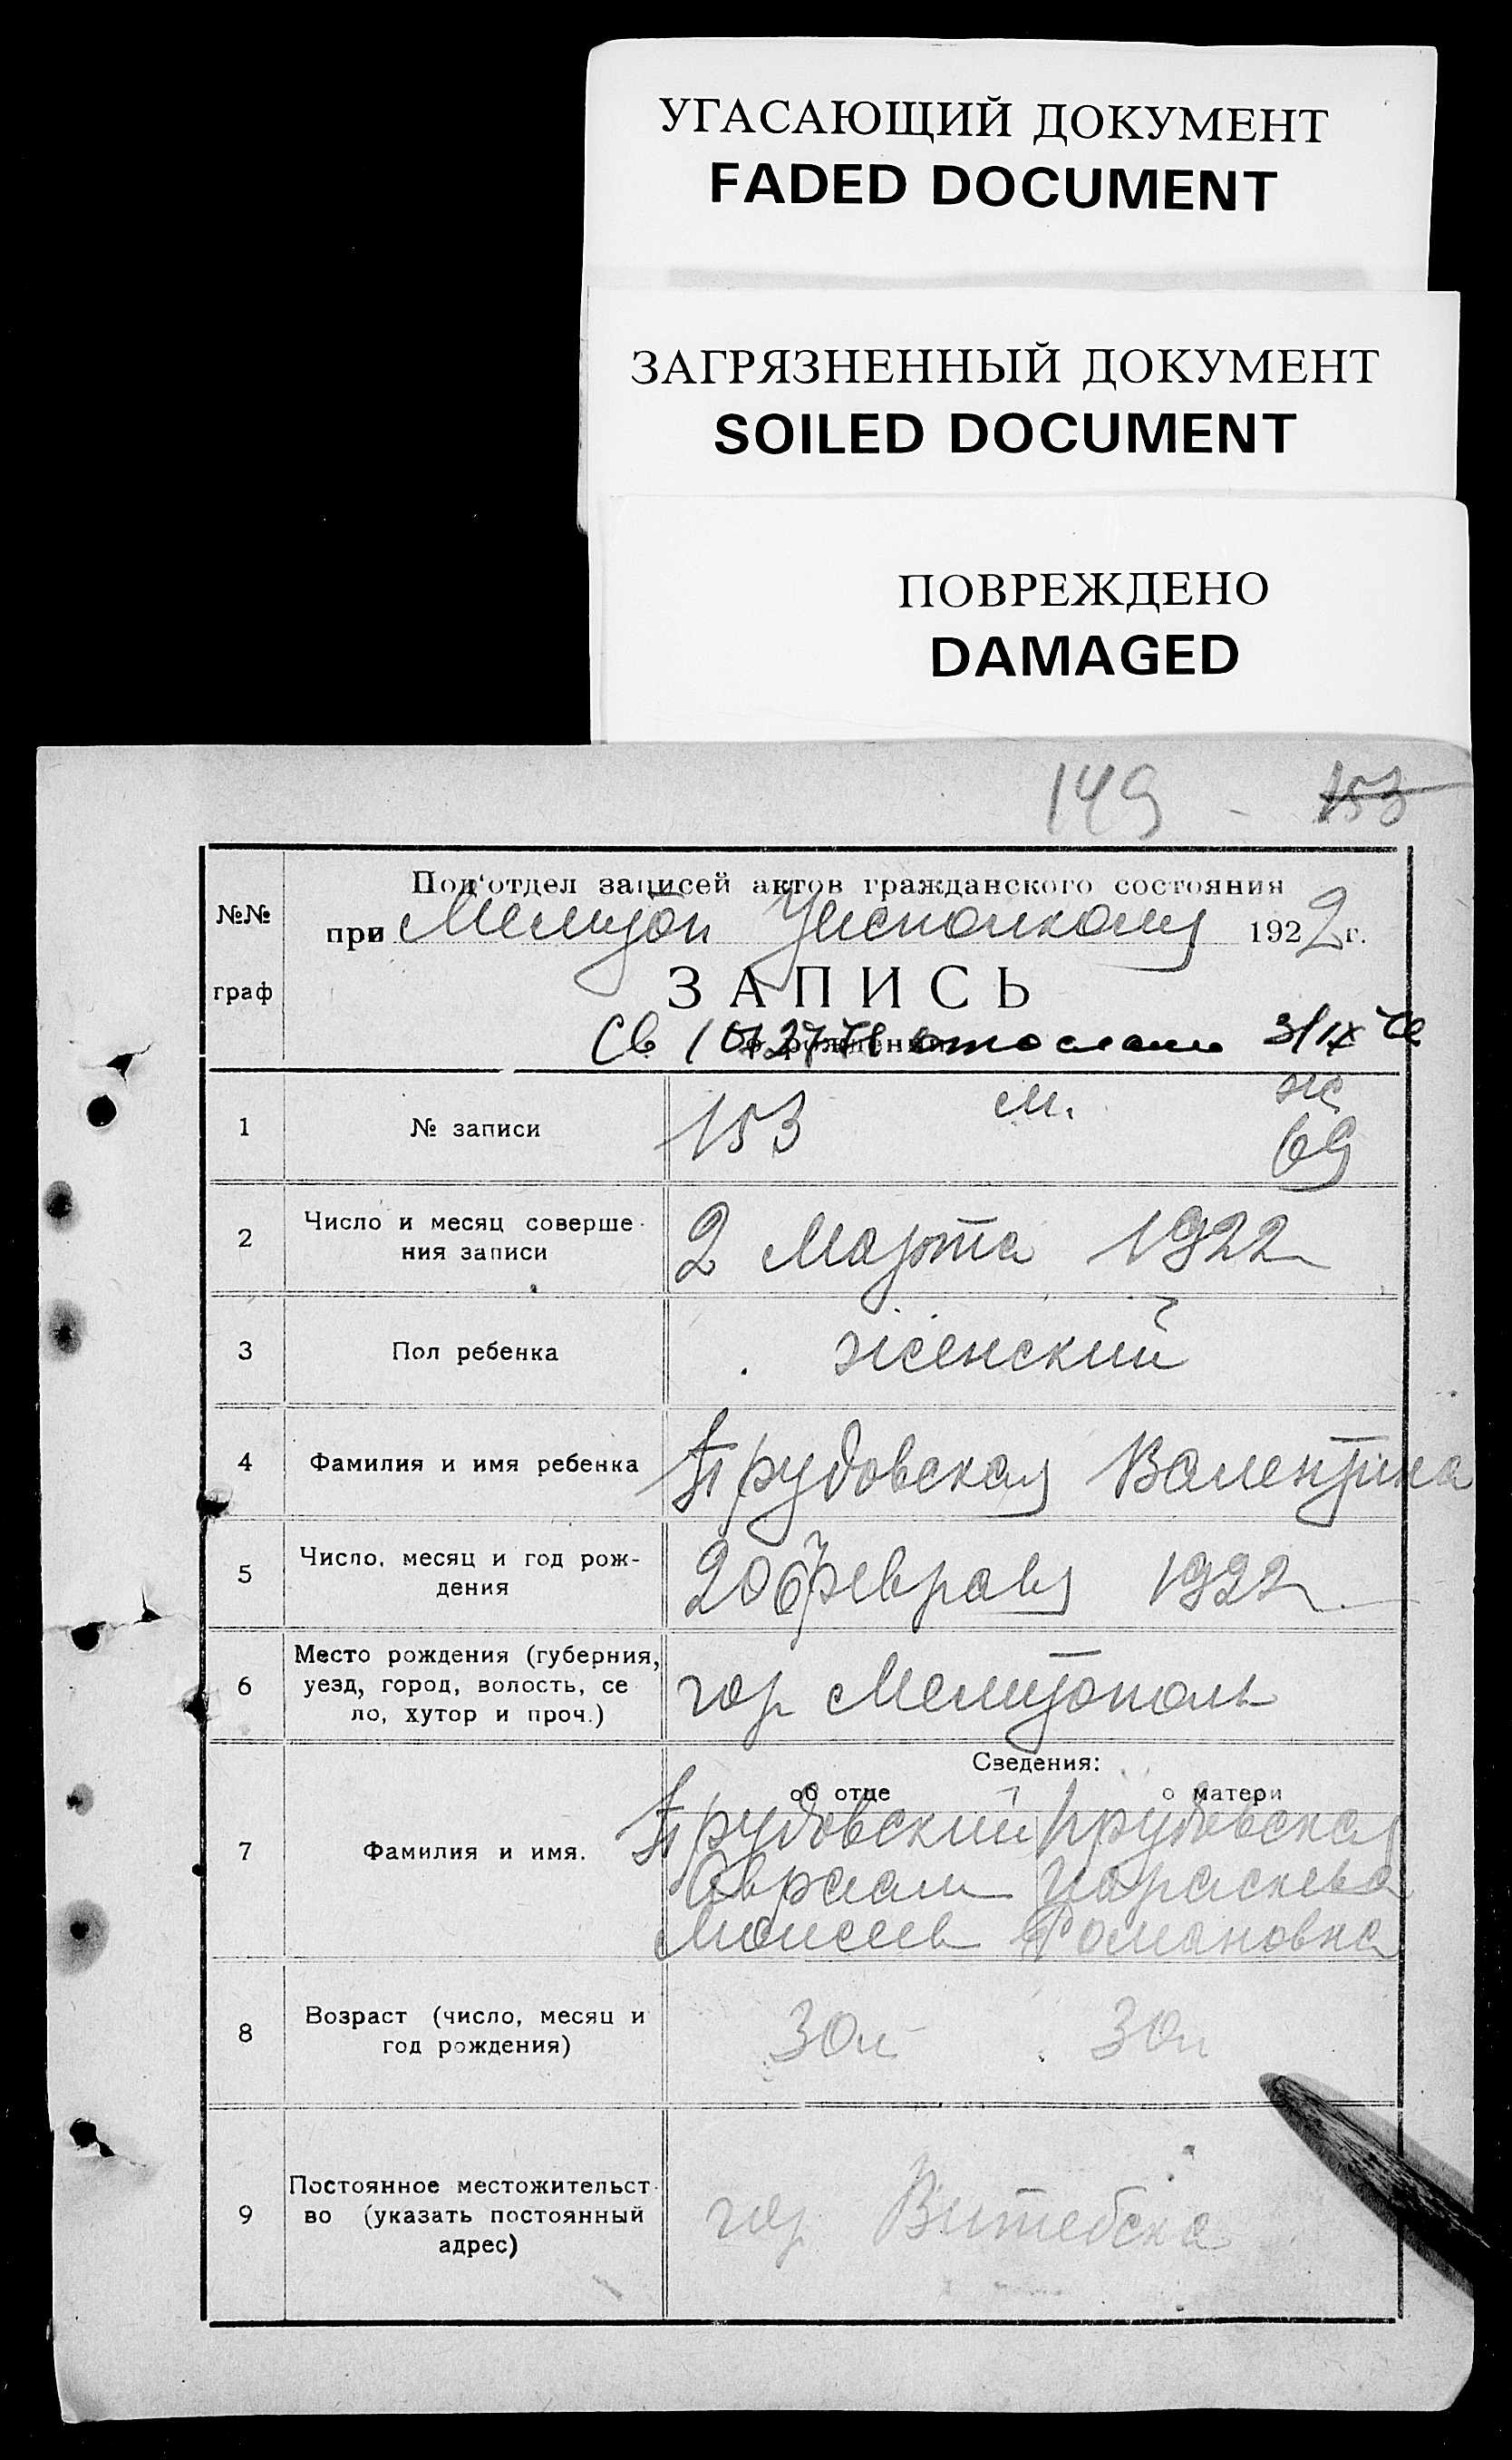 УГАСАЮЩИЙ ДОКУМЕНТ
FADED DOCUMENT
ЗАГРЯЗНЕННЫЙ ДОКУМЕНТ
SOILED DOCUMENT
ПОВРЕЖДЕНО
DAMAGED
149 - 153
№№ граф
Под'отдел записей актов гражданского состояния
при Мелитоп Уисполкому 1922 г.
ЗАПИСЬ
о рождении
Св отослано 3/IX
1 № записи 153 м. ж 69
2 Число и месяц соверше-
ния записи 2 Марта 1922
3 Пол ребенка женский
4 Фамилия и имя ребенка Прудовская Валентина
5 Число, месяц и год рож-
дения 20 февраля 1922
6 Место рождения (губерния,
уезд, город, волость, се
ло, хутор и проч.) гор Мелитополь
Сведения:
об отце о матери
7 Фамилия и имя. Прудовский Прудовская
Авраам Параскева
Моисеев Романовна
8 Возраст (число, месяц и
год рождения) 30л 30л
9 Постоянное местожительст-
во (указать постоянный
адрес) гор Витебска